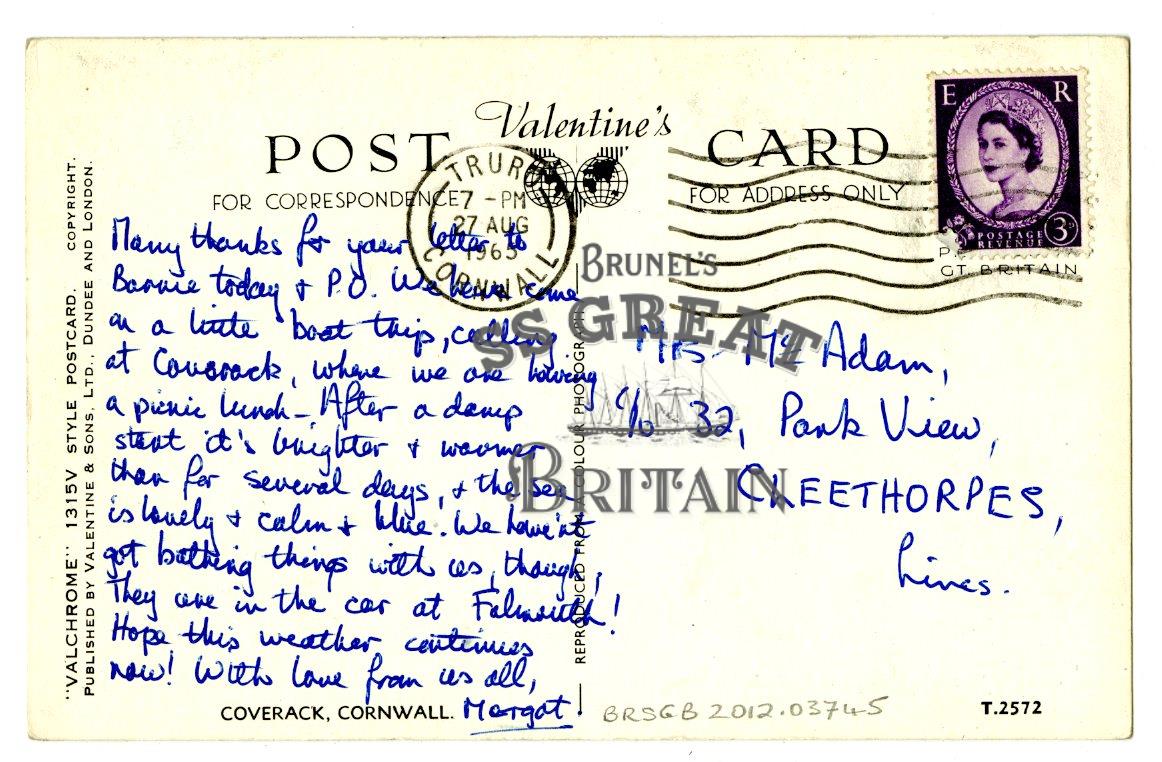 Valentine's
POST CARD
FOR CORRESPONDENCE
FOR ADDRESS ONLY
TRURO
7 - PM
27 AUG
1963
CORNWALL
E R
POSTAGE
REVENUE
3D
GT. BRITAIN
"VALCHROME" 1315V STYLE POSTCARD. COPYRIGHT.
PUBLISHED BY VALENTINE & SONS, LTD., DUNDEE AND LONDON.
Many thanks for your letter to
Barrie today & P.O. We have come
on a little boat trip, calling
at Coverack, where we are having
a picnic lunch - After a damp
start it's brighter & warmer
than for several days, & the sea
is lovely & calm & blue. We have'nt
got bathing things with us, though,
They are in the car at Falmouth!
Hope this weather continues
now! With love from us all,
Margot.
REPRODUCED FROM A COLOUR PHOTOGRAPH
Mrs Mc Adam,
c/o 32, Park View,
CLEETHORPES,
Lincs.
BRUNEL'S
SS GREAT
BRITAIN
COVERACK, CORNWALL.
BRSGB 2012.03745
T.2572